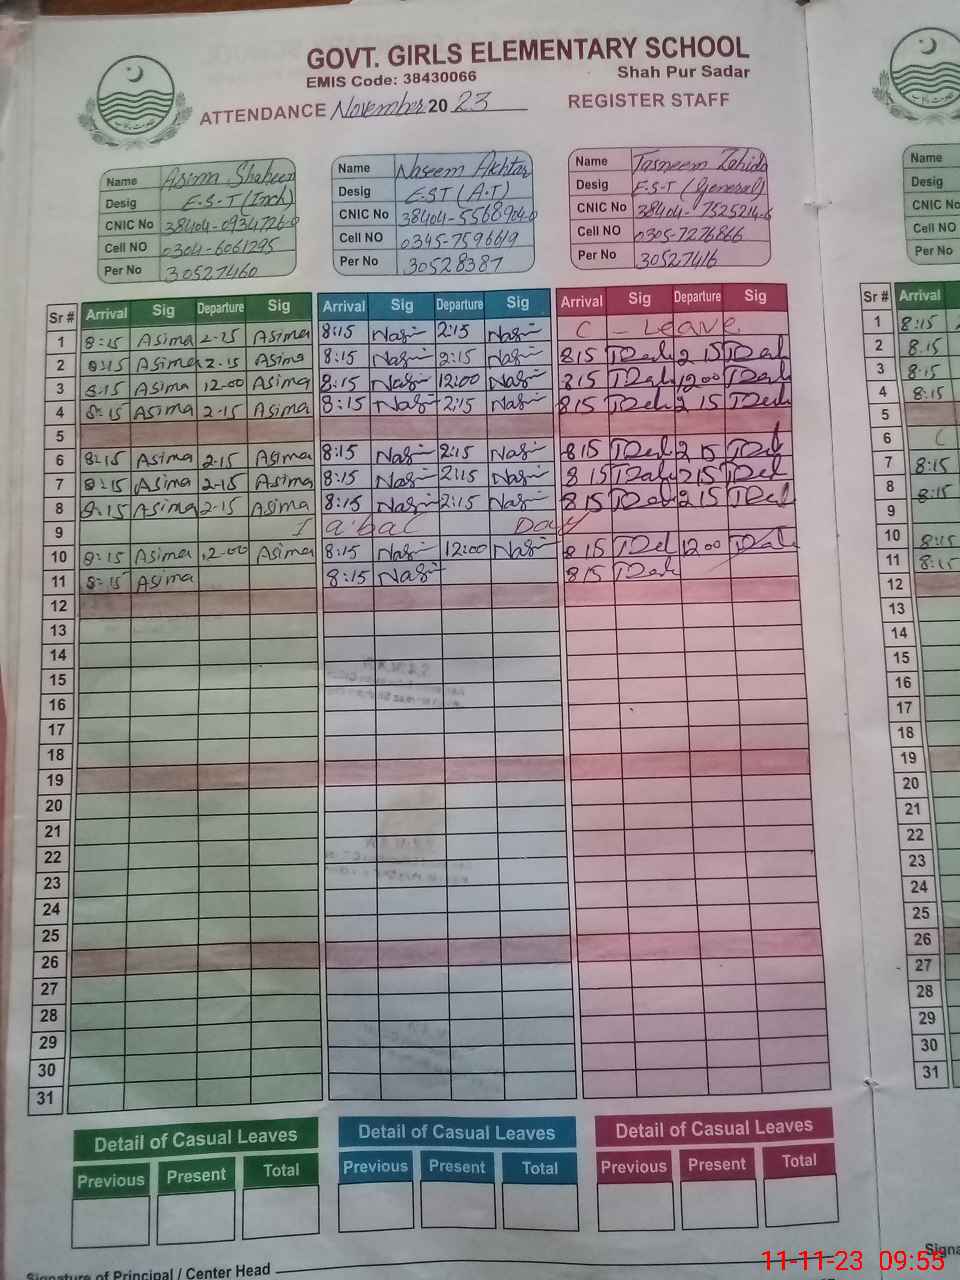 GOVT. GIRLS ELEMENTARY SCHOOL
EMIS Code: 38430066 Shah Pur Sadar
ATTENDANCE November 20 23 REGISTER STAFF
Name Asima Shaheen Name Naseem Akhtar Name Tasneem Zahida Name
Desig E.S.T (Inch) Desig E.S.T (A.T) Desig E.S.T (General) Desig
CNIC No 38404-0934726-0 CNIC No 38404-5568904-0 CNIC No 38404-7525214-6 CNIC No
Cell NO 0304-6061295 Cell NO 0345-7596619 Cell NO 0305-7276866 Cell NO
Per No 30527460 Per No 30528387 Per No 30527416 Per No
Sr # Arrival Sig Departure Sig Arrival Sig Departure Sig Arrival Sig Departure Sig Sr # Arrival
1 8:15 Asima 2-15 Asima 8:15 2:15 C - Leave 1 8:15
2 8:15 Asima 2-15 Asima 8:15 2:15 8 15 2 15 2 8.15
3 8:15 Asima 12-00 Asima 8:15 12:00 8 15 12 00 3 8:15
4 8:15 Asima 2-15 Asima 8:15 2:15 8 15 2 15 4 8:15
5 5
6 8:15 Asima 2-15 Asima 8:15 2:15 8 15 2 15 6 C
7 8:15 Asima 2-15 Asima 8:15 2:15 8 15 2 15 7 8:15
8 8:15 Asima 2-15 Asima 8:15 2:15 8 15 2 15 8 8:15
9 Iqbal Day 9
10 8:15 Asima 12-00 Asima 8:15 12:00 8 15 12 00 10 8:15
11 8:15 Asima 8:15 8 15 11 8:15
12 12
13 13
14 14
15 15
16 16
17 17
18 18
19 19
20 20
21 21
22 22
23 23
24 24
25 25
26 26
27 27
28 28
29 29
30 30
31 31
Detail of Casual Leaves Detail of Casual Leaves Detail of Casual Leaves
Previous Present Total Previous Present Total Previous Present Total
Signature of Principal / Center Head
11-11-23 09:55